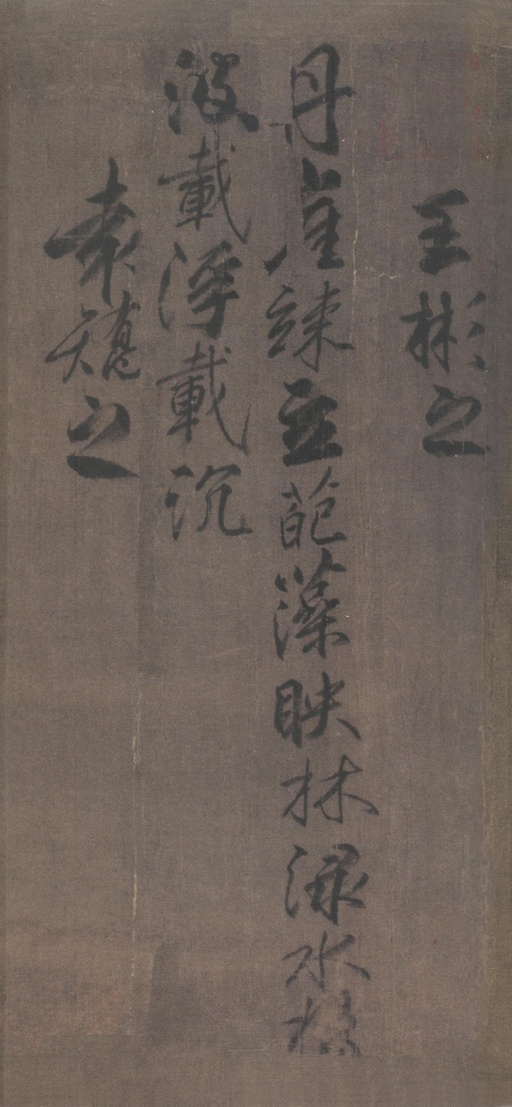 王彬之
丹崖竦立葩藻映林渌水揚
波載浮載沉
袁矯之